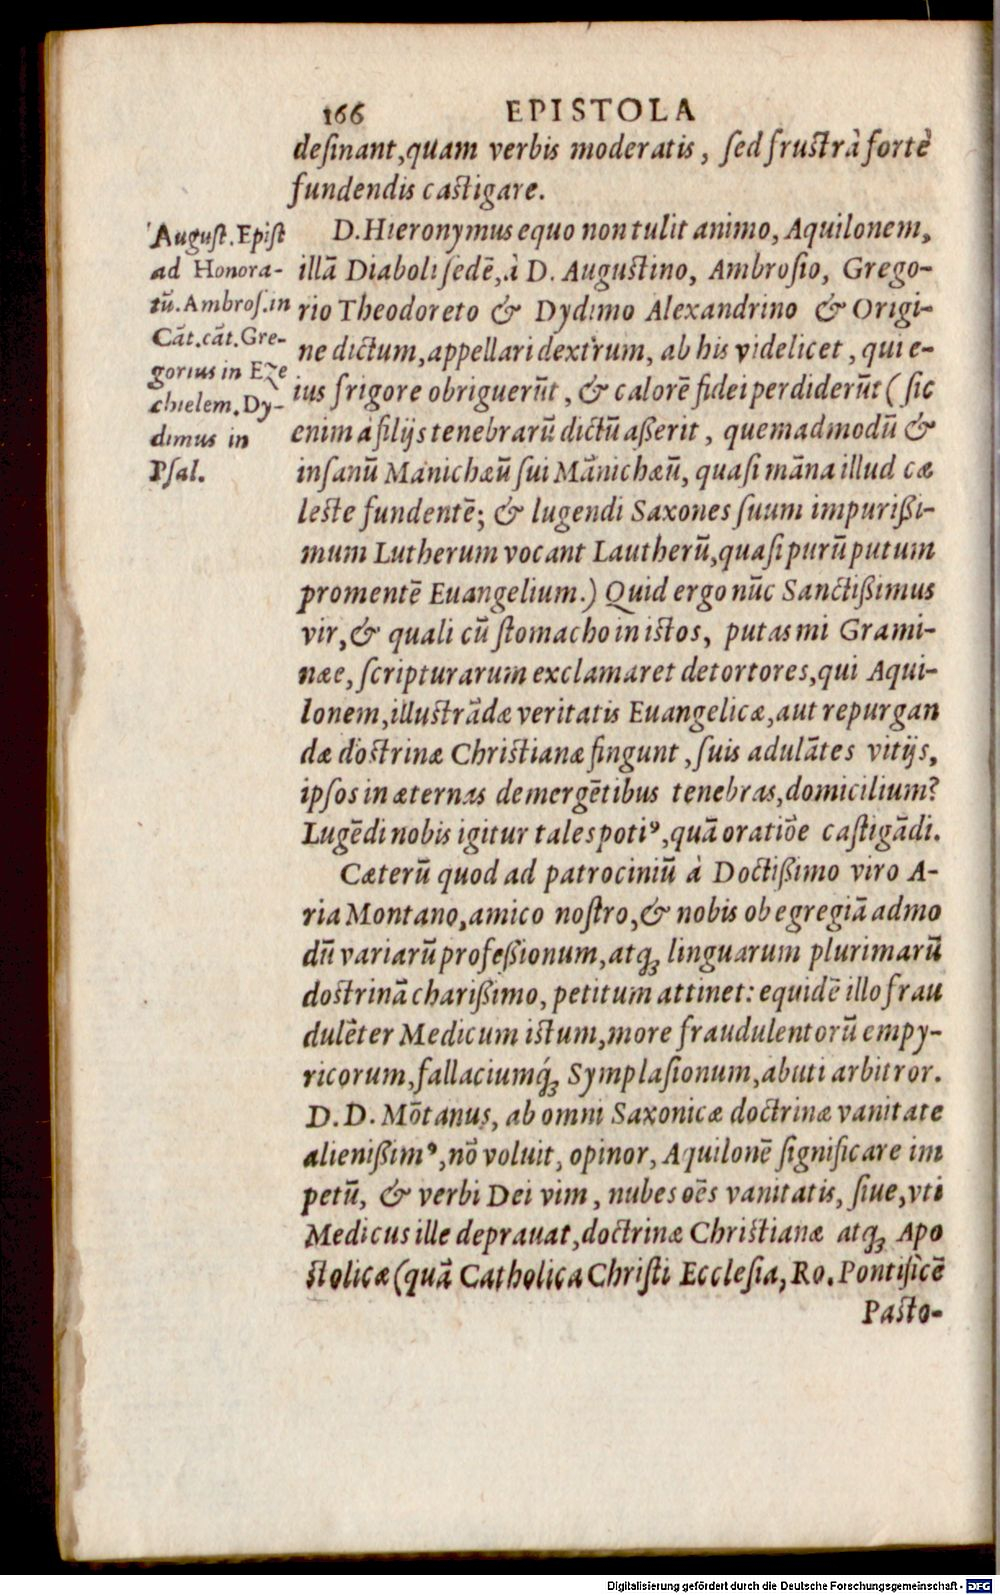 166 EPISTOLA
desinant,quam verbis moderatis, sed frustrà fortè
fundendis castigare.
D.Hieronymus equo non tulit animo, Aquilonem,
illā Diaboli sedē,à D. Augustino, Ambrosio, Grego-
rio Theodoreto & Dydimo Alexandrino & Origi-
ne dictum,appellari dextrum, ab his videlicet, qui e-
ius frigore obriguerūt, & calorē fidei perdiderūt (sic
enim à filijs tenebrarū dictū aßerit, quemadmodū &
insanū Manichæū sui Mānichæū, quasi māna illud cæ
leste fundentē; & lugendi Saxones suum impurißi-
mum Lutherum vocant Lautherū,quasi purū putum
promentē Euangelium.) Quid ergo nūc Sanctißimus
vir,& quali cū stomacho in istos, putas mi Grami-
næe, scripturarum exclamaret detortores,qui Aqui-
lonem,illustrādæ veritatis Euangelicæ,aut repurgan
dæ doctrinæ Christianæ fingunt, suis adulātes vitijs,
ipsos in æternas demergētibus tenebras,domicilium?
Lugēdi nobis igitur tales potiꝰ,quā oratiōe castigādi.
Cæterū quod ad patrociniū à Doctißimo viro A-
ria Montano,amico nostro,& nobis ob egregiā admo
dū variarū profeßionum,atq; linguarum plurimarū
doctrinā charißimo, petitum attinet: equidē illo frau
dulēter Medicum istum,more fraudulentorū empy-
ricorum,fallaciumq́; Symplasionum,abuti arbitror.
D.D. Mōtanus, ab omni Saxonicæ doctrinæ vanitate
alienißimꝰ,nō voluit, opinor, Aquilonē significare im
petū, & verbi Dei vim, nubes oēs vanitatis, siue,vti
Medicus ille deprauat,doctrinæ Christianæ atq; Apo
stolicæ (quā Catholica Christi Ecclesia, Ro. Pontificē
Pasto-
August. Epist
ad Honora-
tū. Ambros. in
Cāt. cāt. Gre-
gorius in Eze
chielem. Dy-
dimus in
Psal.
Digitalisierung gefördert durch die Deutsche Forschungsgemeinschaft - DFG